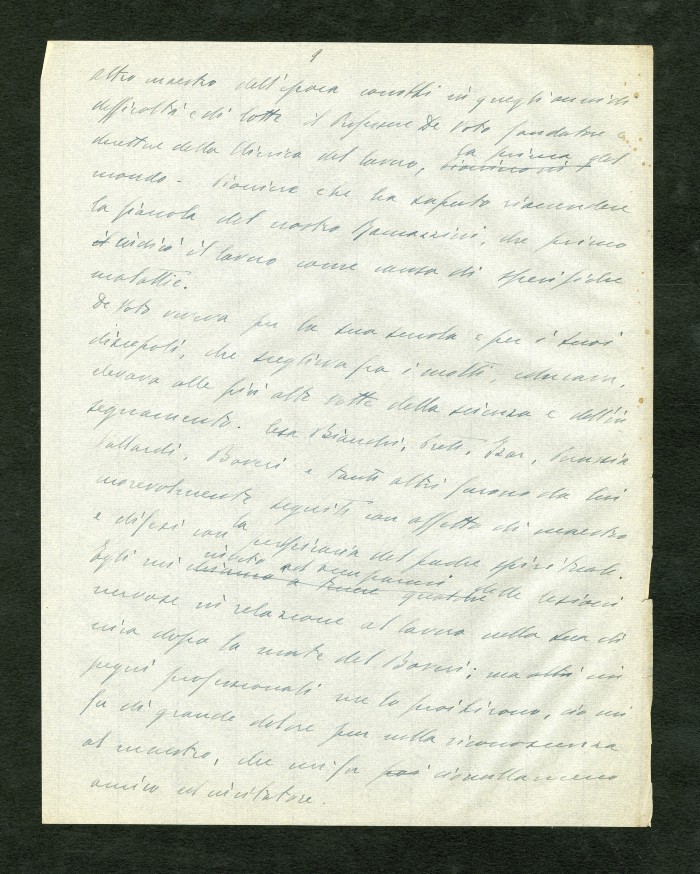 1
altro maestro dell'epoca conobbi in quegli anni di
difficoltà e di lotte il Professore De Voto fondatore e
direttore della Clinica del lavoro, la prima del
mondo - Pioniere che ha saputo riaccendere
la fiaccola del nostro Ramazzini, che primo
indicò il lavoro come causa di specifiche
malattie.
De Voto viveva per la sua scuola e per i suoi
discepoli, che sceglieva fra i molti, educava,
elevava alle più alte vette della scienza e dell'in
segnamento. Bianchi, Preti,
Vallardi, Boveri e tanti altri furono da lui
amorevolmente seguiti con affetto di maestro
e difesi con la del padre spirituale.
Egli mi invitò ad occuparmi delle lesioni
nervose in relazione al lavoro nella sua cli
nica dopo la morte del Boveri; ma altri im
pegni professionali me lo proibirono, ciò mi
fu di grande dolore per nella riconoscenza
al maestro, che mi fu ciò nullameno
amico ed incitatore.